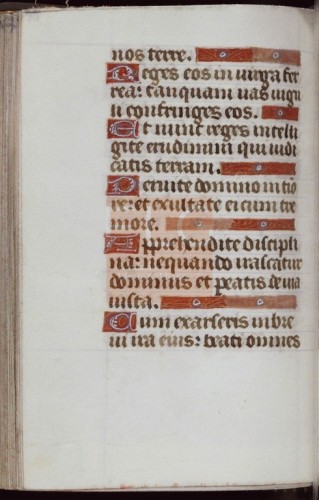 nos terre.
Reges eos in virga fer
rea: tanquam vas figu
li confringes eos.
Et nunc reges intelli
gite erudimini qui iudi
catis terram.
Seruite domino in timo
re: et exultate ei cum tre
more.
Apprehendite discipli
na: nequando irascatur
dominus et peatis de via
iusta.
Cum exarserit in bre
ui ira eius: beati omnes